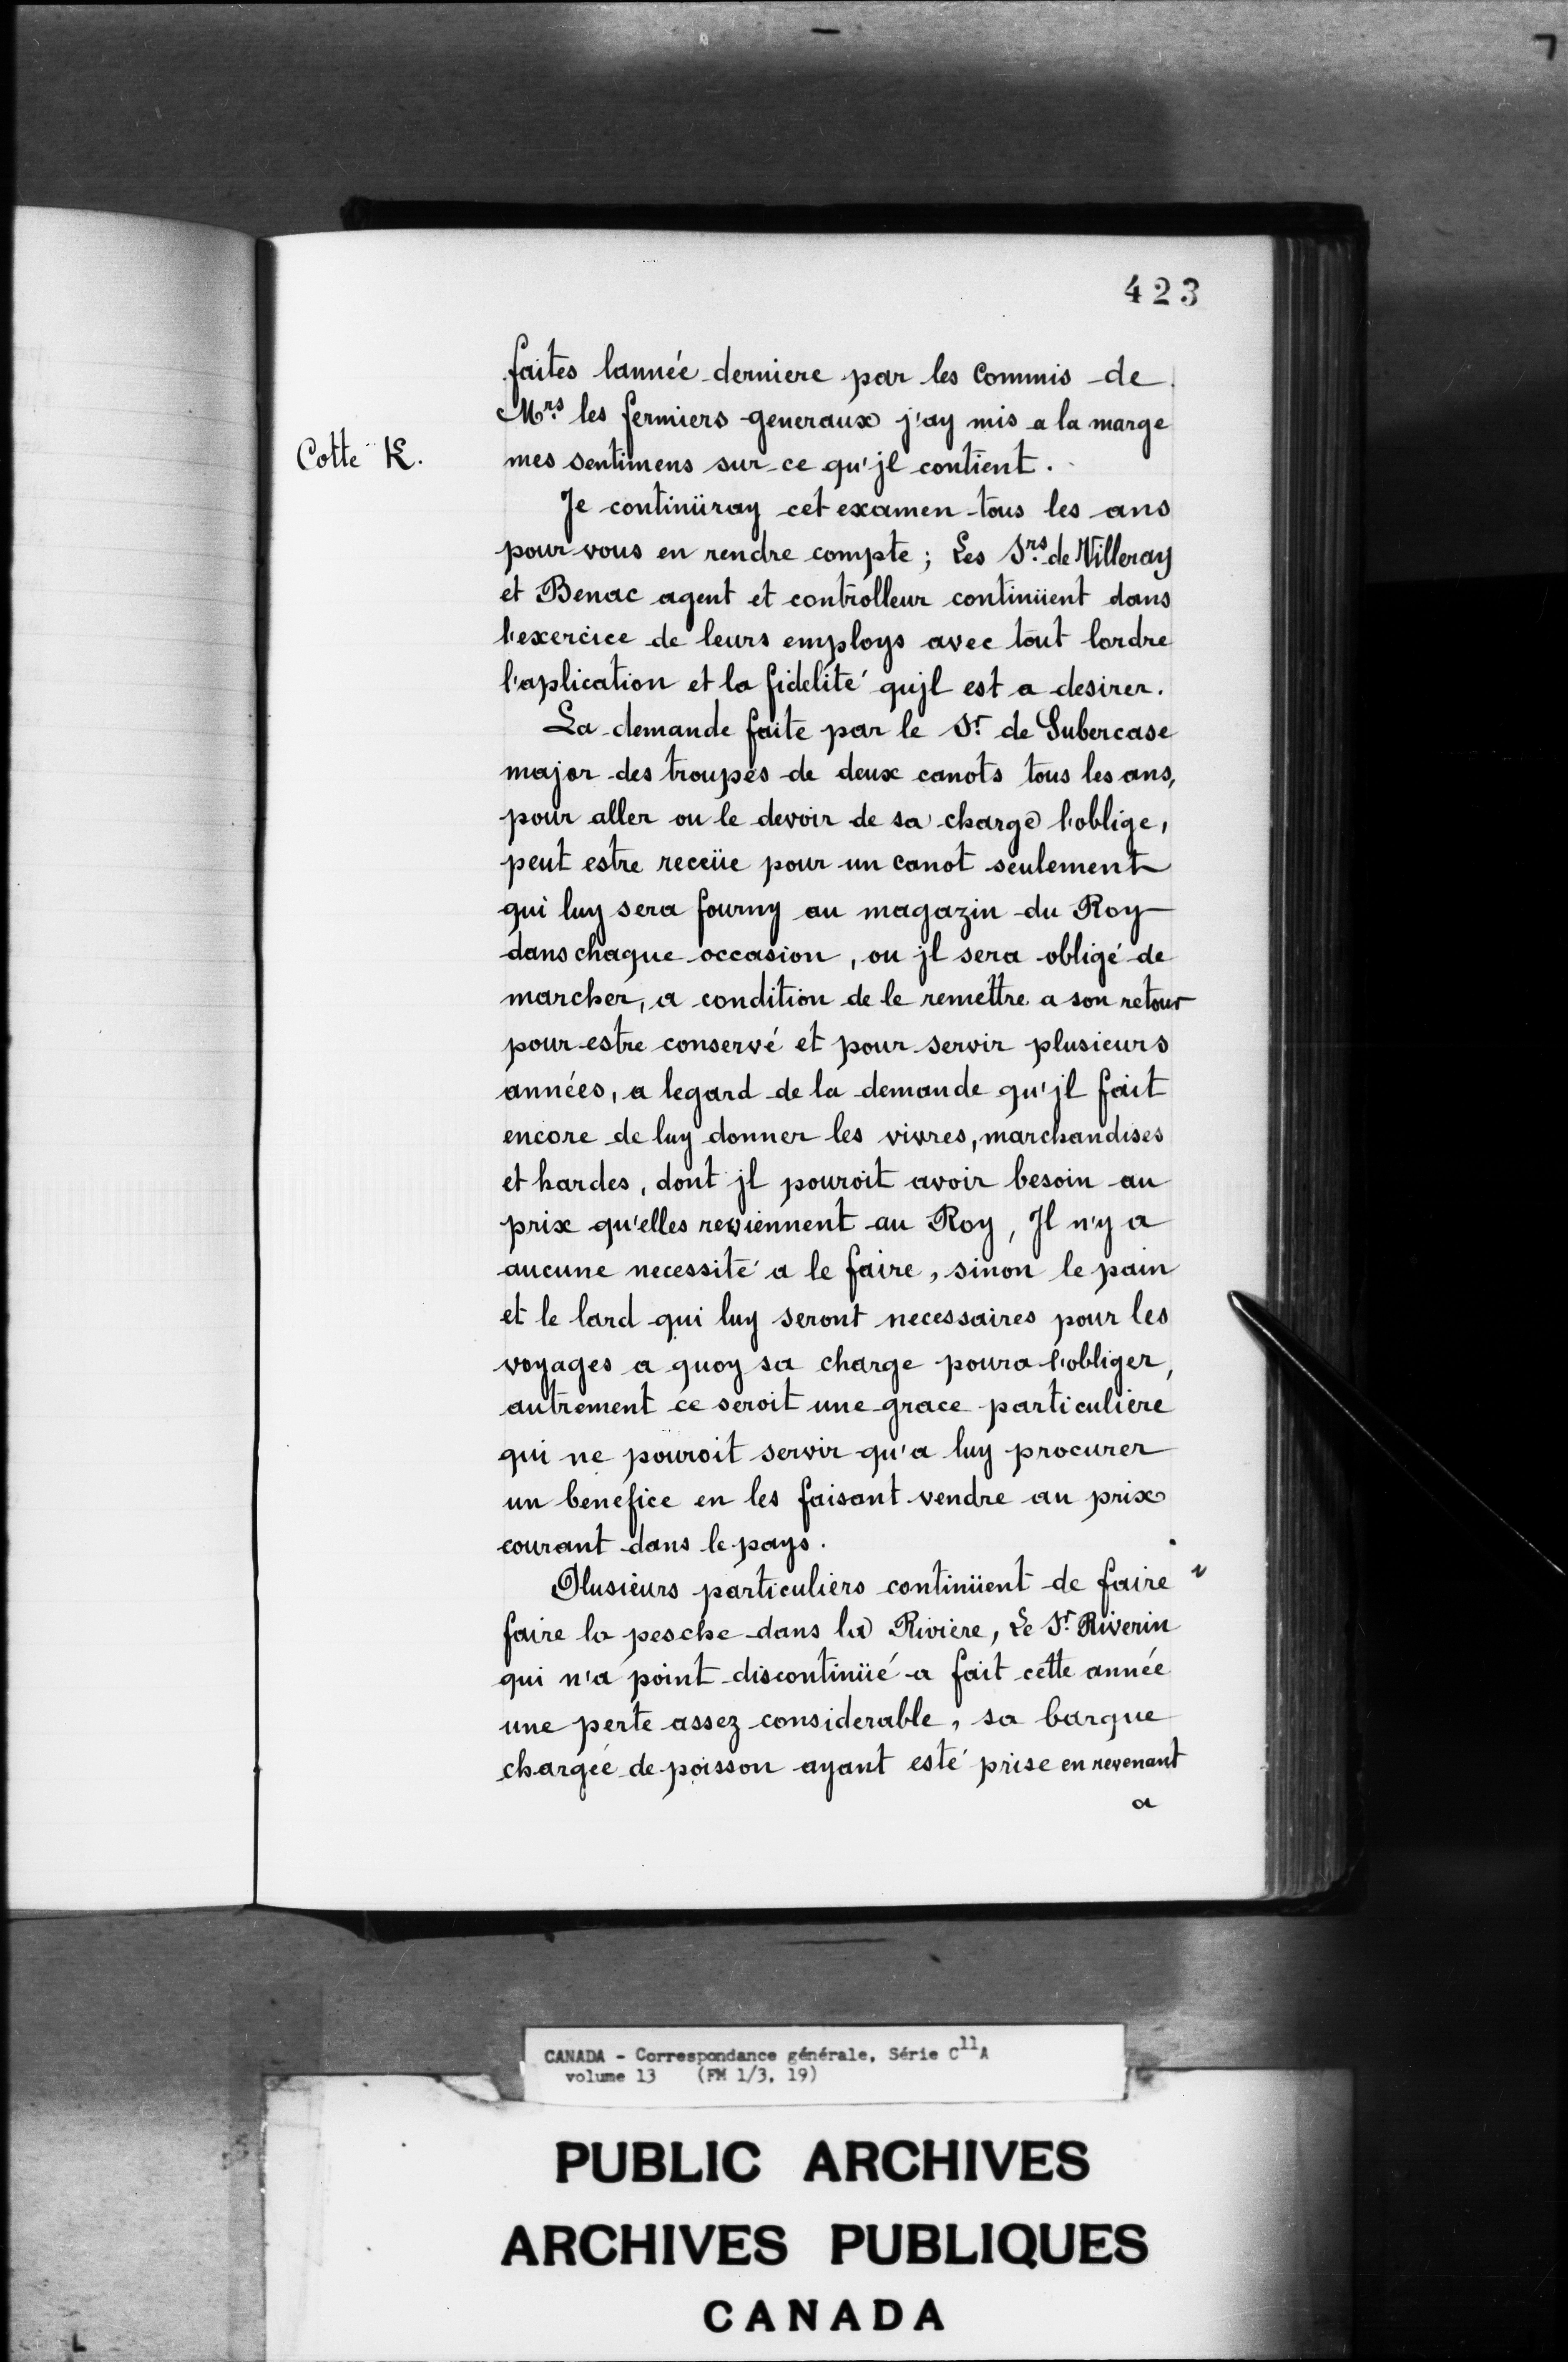 423
faites lannée derniere par les Commis de
Mrs les fermiers generaux j'ay mis a la marge
Cotte K.
mes sentimens sur ce qu'jl contient.
Je continüray cet examen tous les ans
pour vous en rendre compte ; Les Srs de Villeray
et Benac agent et controlleur continüent dans
l'exercice de leurs employs avec tout lordre
l'aplication et la fidelité qujl est a desirer.
La demande faite par le Sr de Subercase
major des troupes de deux canots tous les ans,
pour aller ou le devoir de sa charge l'oblige,
peut estre receüe pour un canot seulement
qui luy sera fourny au magazin du Roy
dans chaque occasion, ou jl sera obligé de
marcher, a condition de le remettre a son retour
pour estre conservé et pour servir plusieurs
années, a legard de la demande qu'jl fait
encore de luy donner les vivres, marchandises
et hardes, dont jl pouroit avoir besoin au
prix qu'elles reviennent au Roy, Il n'y a
aucune necessité a le faire, sinon le pain
et le lard qui luy seront necessaires pour les
voyages a quoy sa charge poura l'obliger,
autrement ce seroit une grace particuliere
qui ne pouroit servir qu'a luy procurer
un benefice en les faisant vendre au prix
courant dans le pays.
Plusieurs particuliers continüent de faire
faire la pesche dans la Riviere, Le Sr Riverin
qui n'a point discontinüé a fait cette année
une perte assez considerable, sa barque
chargée de poisson ayant esté prise en revenant
a
CANADA - Correspondance générale, Série C11A
volume 13 (FM 1/3, 19)
PUBLIC ARCHIVES
ARCHIVES PUBLIQUES
CANADA